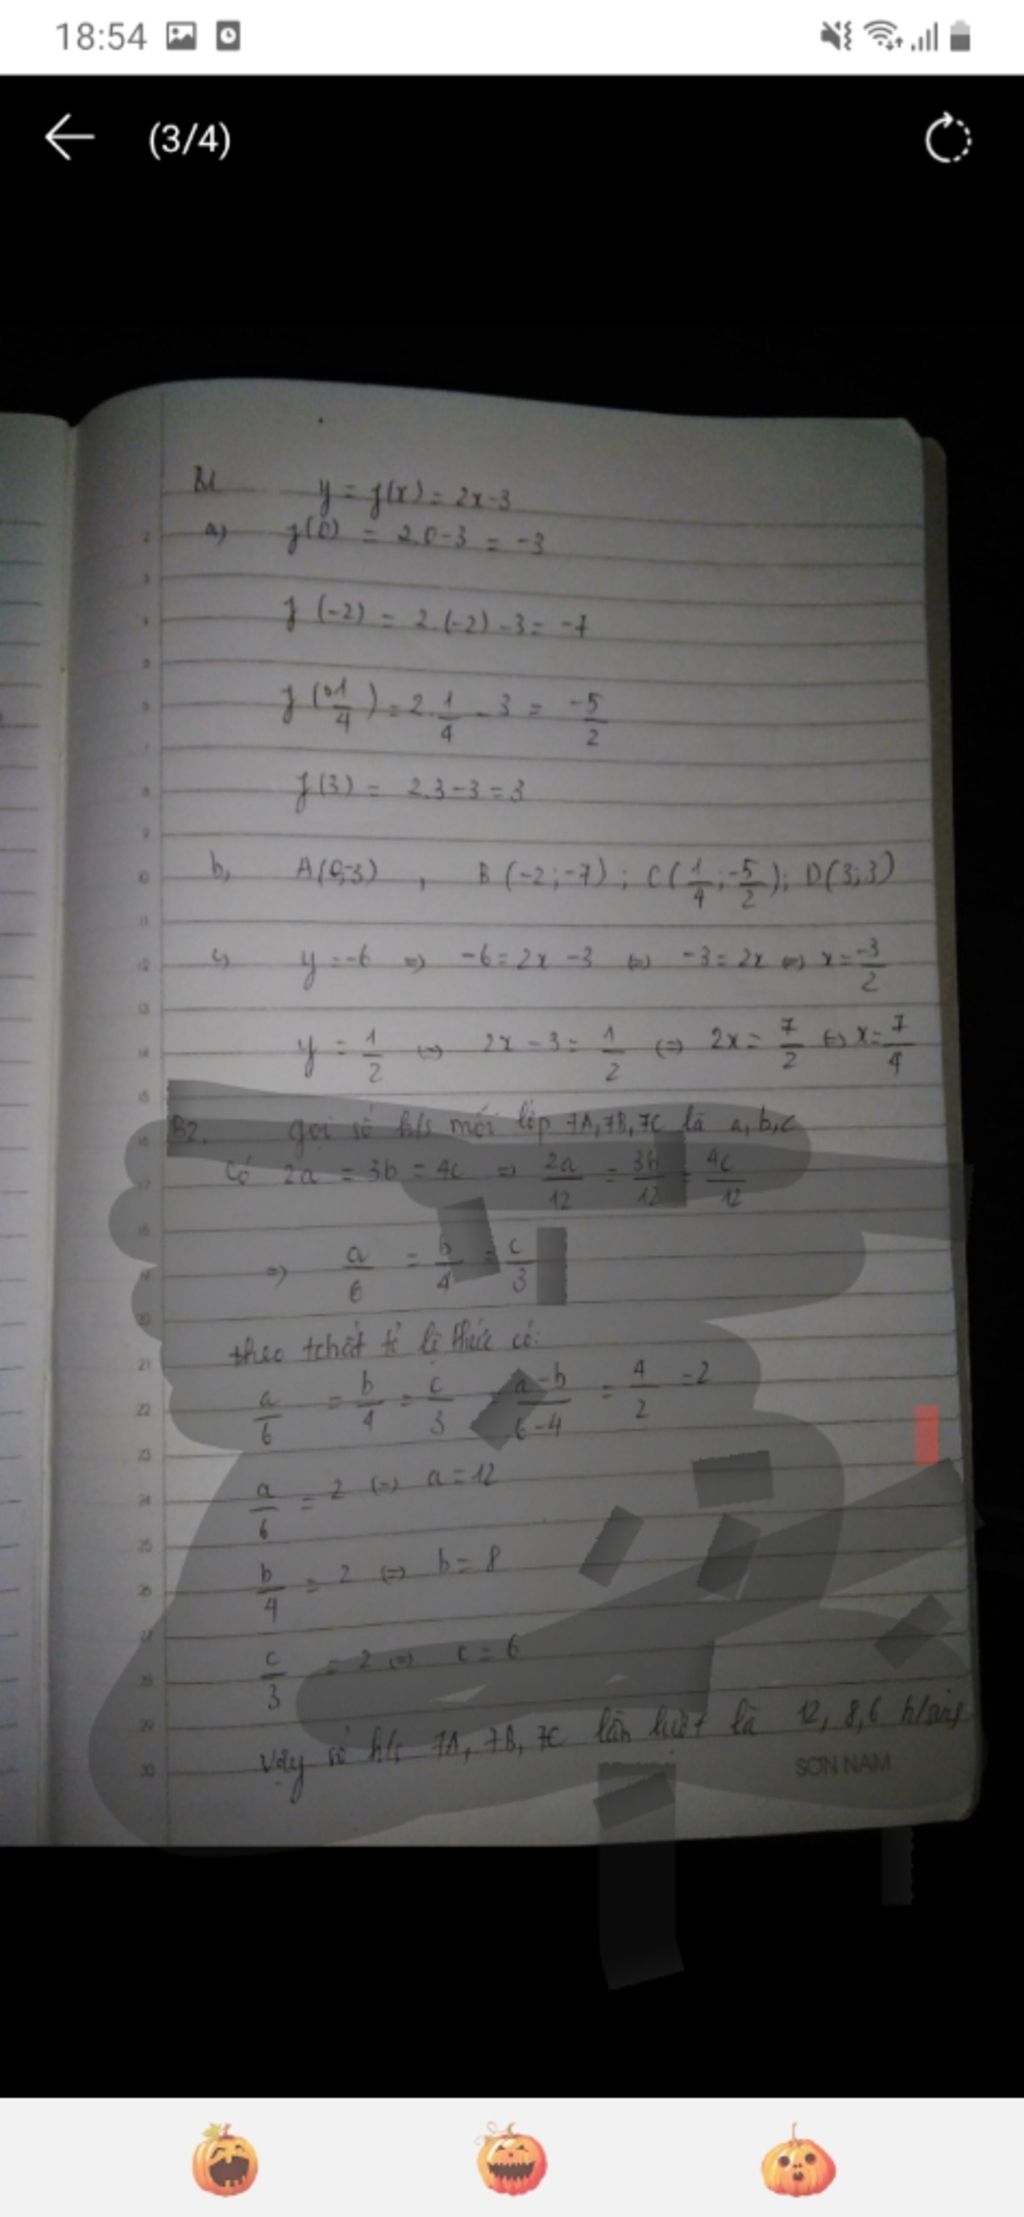 18:54
(3/4)
B1 y = f(x) = 2x-3
a) f(0) = 2.0-3 = -3
f(-2) = 2.(-2)-3 = -7
f(1/4) = 2.1/4 - 3 = -5/2
f(3) = 2.3-3 = 3
b, A(0;-3), B(-2;-7); C(1/4;-5/2); D(3;3)
c) y = -6 => -6 = 2x-3 <=> -3 = 2x <=> x = -3/2
y = 1/2 <=> 2x-3 = 1/2 <=> 2x = 7/2 <=> x = 7/4
B2. gọi số h/s mỗi lớp 7A, 7B, 7C là a, b, c
Có 2a = 3b = 4c => 2a/12 = 3b/12 = 4c/12
=> a/6 = b/4 = c/3
theo tchất tỉ lệ thức có:
a/6 = b/4 = c/3 = a-b/6-4 = 4/2 = 2
a/6 = 2 <=> a = 12
b/4 = 2 <=> b = 8
c/3 = 2 <=> c = 6
Vậy số h/s 7A, 7B, 7C lần lượt là 12, 8, 6 h/sinh
SƠN NAM